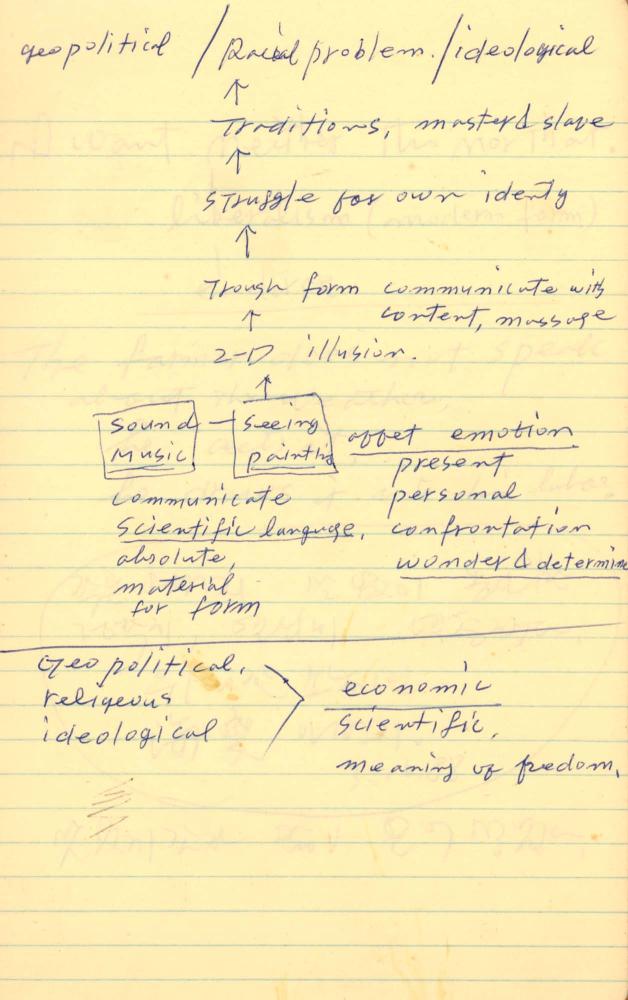 geopolitical / Racial problem. / ideological
↑
Traditions, master & slave
↑
struggle for own identy
↑
Trough form communicate with
content, massage
↑
2-D illusion.
↑
Sound — Seeing
Music painting
affet emotion
present
personal
confrontation
wonder & determine
communicate
Scientific language,
absolute,
material
for form
Geo political.
religeous
ideological
economic
scientific,
meaning of fredom,